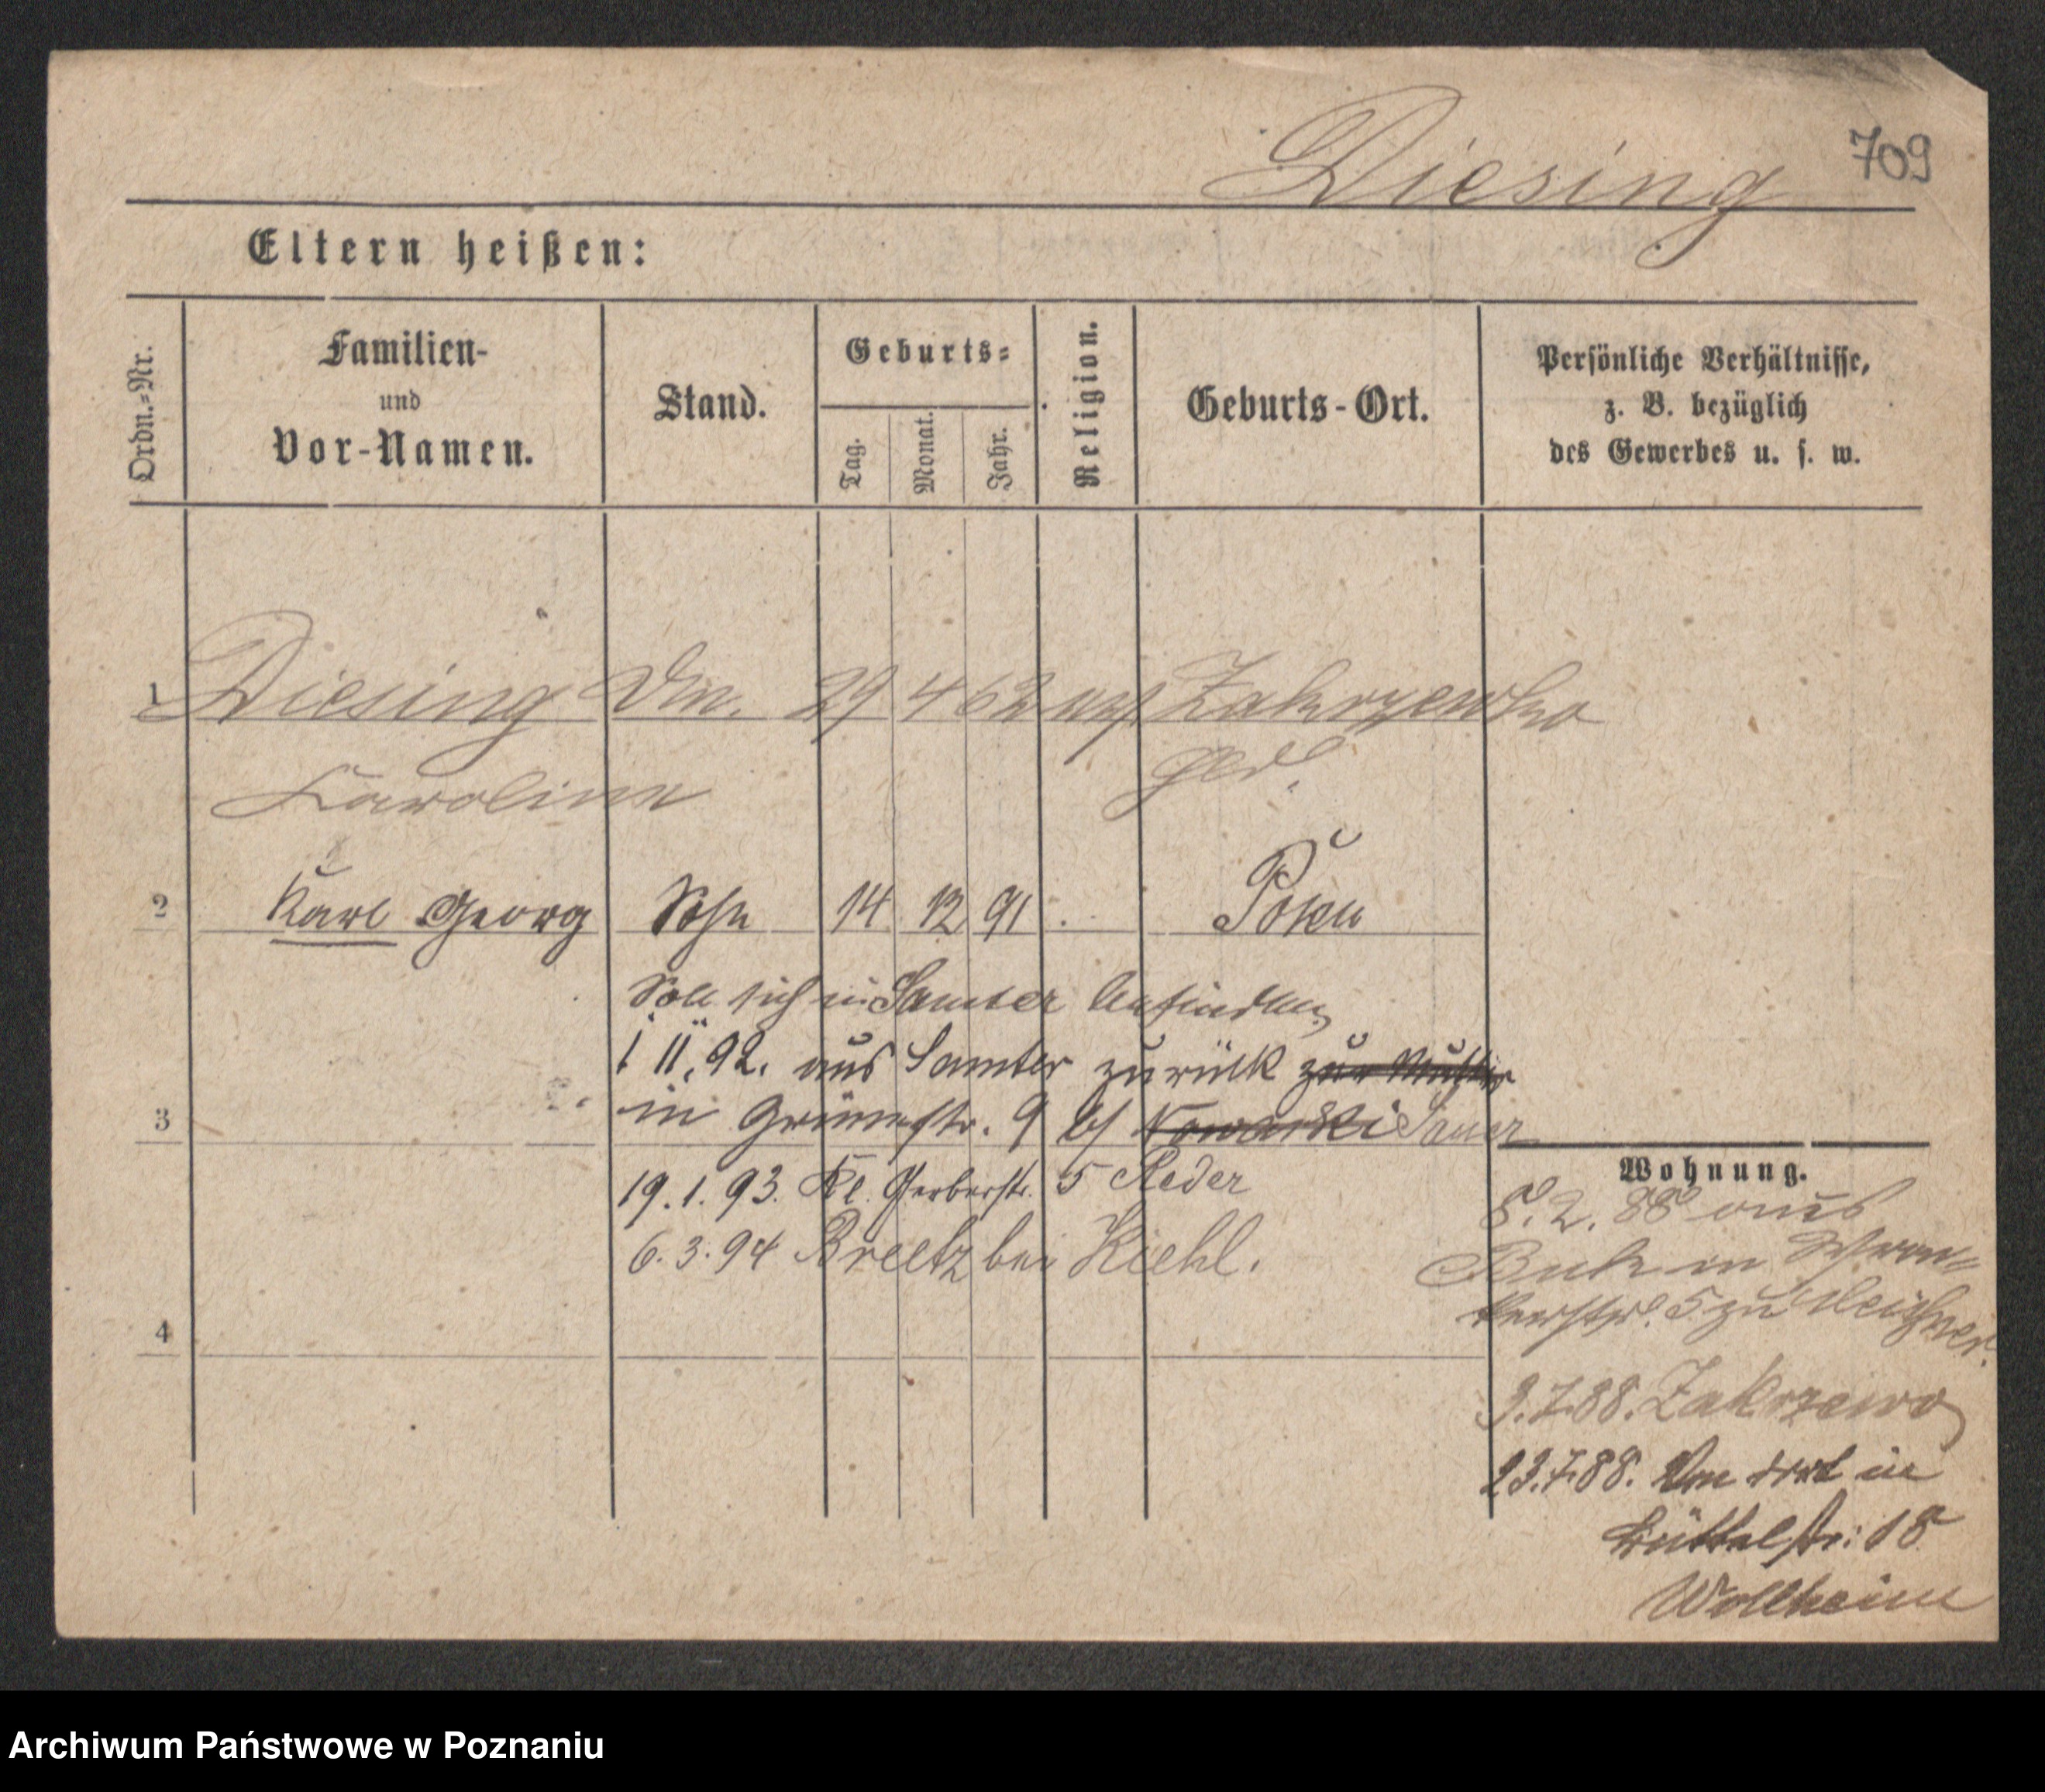 709
Diesing
Eltern heißen:
Ordn.-Nr.
Familien-
und
Vor-Namen.
Stand.
Geburts-
Tag.
Monat.
Jahr.
Religion.
Geburts-Ort.
Persönliche Verhältnisse,
z. B. bezüglich
des Gewerbes u. s. w.
1 Diesing 29 4 62
Karoline
2 Karl Georg Sohn 14 12 91 Posen
Soll sich in Samter befinden
1 11. 92. aus Samter zurück zur Mutter
3 in Grünestr. 9 b/ Nowacki Sauer
19. 1. 93. Kl. Gerberstr. 5 Reder
6. 3. 94 Breetz bei Kiehl.
4
Wohnung.
8. 2. 88 aus
Buk in Wron-
kerstr. 5 zu
3.7.88. Zakrzewo
23.7.88. Von dort in
Büttelstr. 18
Wollheim
Archiwum Państwowe w Poznaniu